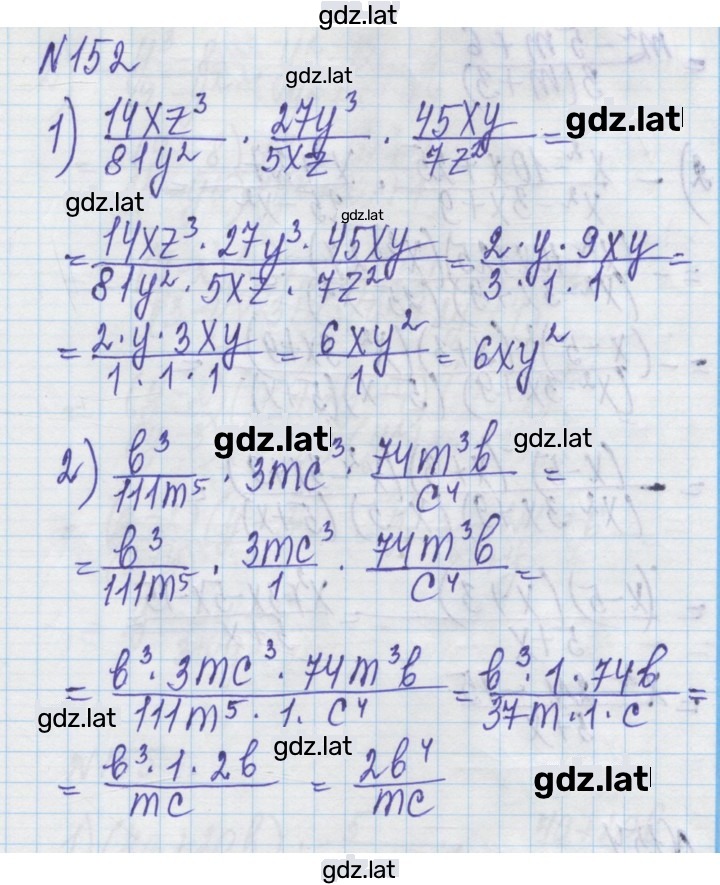 gdz.lat
N152
gdz.lat
1) 14xz³/81y² · 27y³/5xz · 45xy/7z² =
gdz.lat
gdz.lat
gdz.lat
= 14xz³ · 27y³ · 45xy / 81y² · 5xz · 7z² = 2 · y · 9xy / 3 · 1 · 1 =
= 2 · y · 3xy / 1 · 1 · 1 = 6xy²/1 = 6xy²
gdz.lat
gdz.lat
2) b³/111m⁵ · 3mc³ · 74m³b/c⁴ =
= b³/111m⁵ · 3mc³/1 · 74m³b/c⁴ =
= b³ · 3mc³ · 74m³b / 111m⁵ · 1 · c⁴ = b³ · 1 · 74b / 37m · 1 · c =
gdz.lat
gdz.lat
= b³ · 1 · 2b / mc = 2b⁴/mc
gdz.lat
gdz.lat